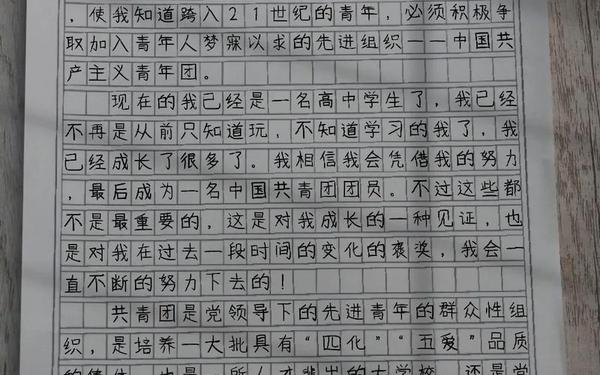 ，使我知道跨入21世纪的青年，必须积极争
取加入青年人梦寐以求的先进组织——中国共
产主义青年团。
现在的我已经是一名高中学生了，我已经
不再是从前只知道玩，不知道学习的我了，我
已经成长了很多了。我相信我会凭借我的努力
，最后成为一名中国共青团团员。不过这些都
不是最重要的，这是对我成长的一种见证，也
是对我在过去一段时间的变化的褒奖，我会一
直不断的努力下去的！
共青团是党领导下的先进青年的群众性组
织，是培养一大批具有“四化”“五爱”品质
的优体，也是一所人才辈出的大学校，还是党